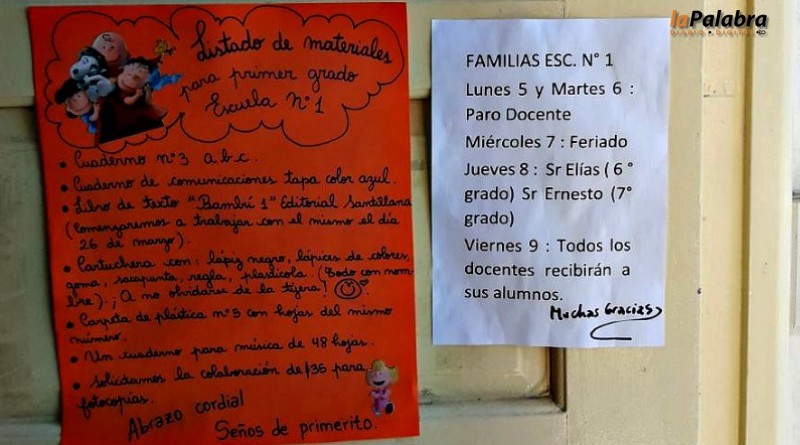 Listado de materiales
para primer grado
Escuela N°1
• Cuaderno n°3 a b c.
• Cuaderno de comunicaciones tapa color azul.
• Libro de texto "Bambi 1" Editorial Santillana
(comenzaremos a trabajar con el mismo el día
26 de marzo).
• Cartuchera con: lápiz negro, lápices de colores,
goma, sacapunta, regla, plasticola. (Todo con nom-
bre). ¡A no olvidarse de la tijera!
• Carpeta de plástica n°5 con hojas del mismo
número.
• Un cuaderno para música de 48 hojas.
• Solicitamos la colaboración de $35 para
fotocopias.
Abrazo cordial
Seños de primerito.
laPalabra
DIARIO DIGITAL
FAMILIAS ESC. N° 1
Lunes 5 y Martes 6 :
Paro Docente
Miércoles 7 : Feriado
Jueves 8 : Sr Elías ( 6 °
grado) Sr Ernesto (7°
grado)
Viernes 9 : Todos los
docentes recibirán a
sus alumnos.
Muchas Gracias